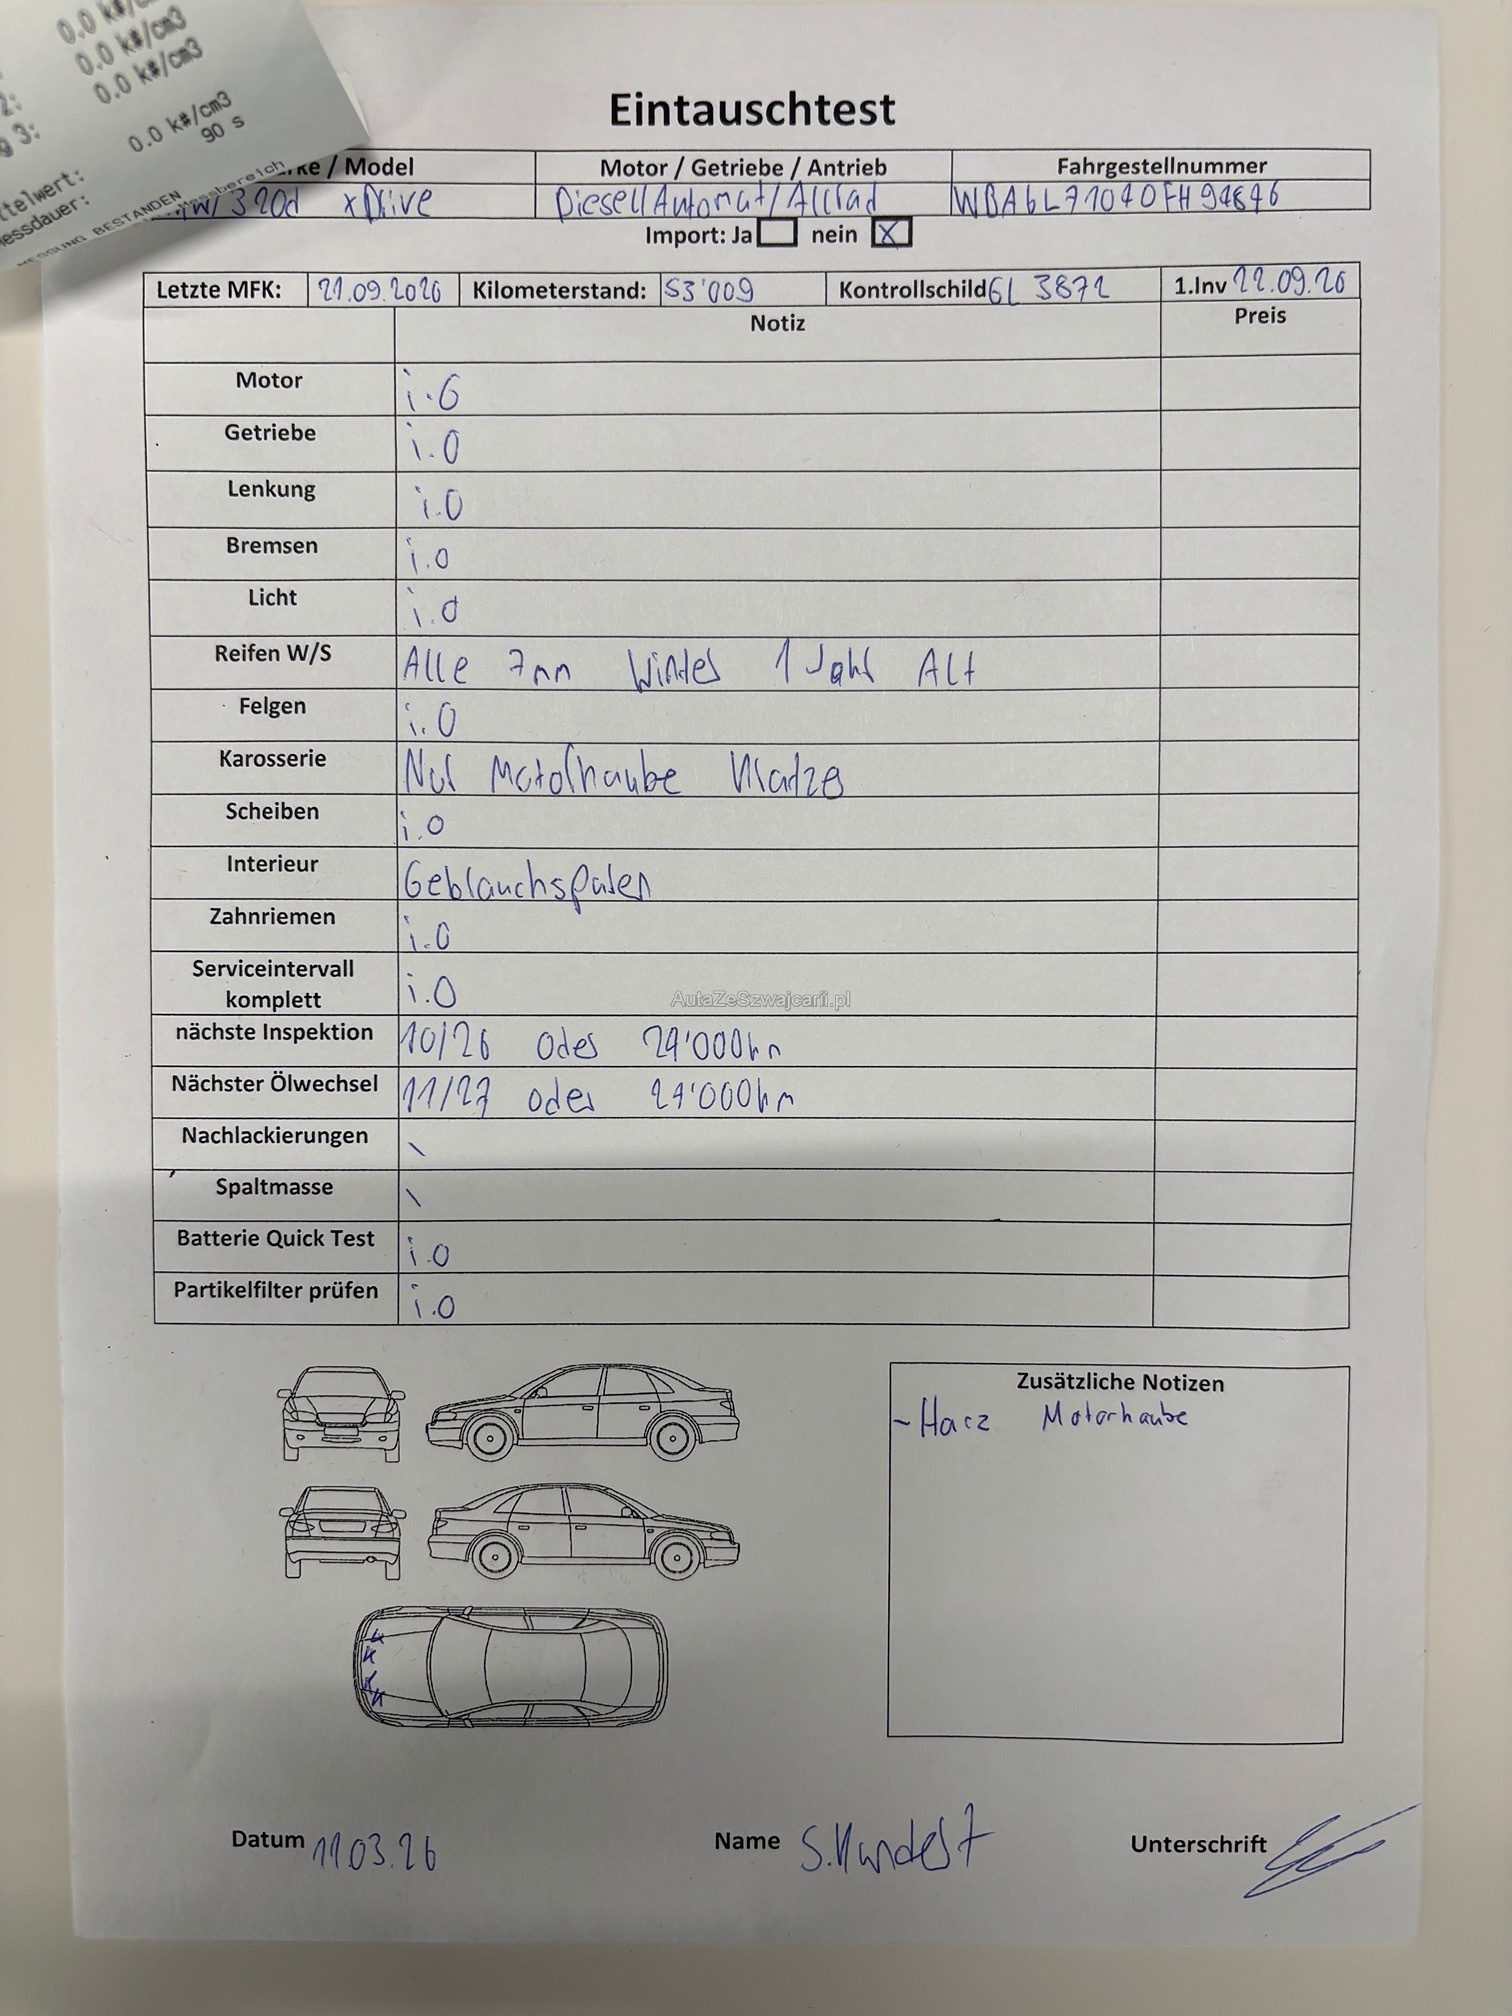 0.0 k#/cm3
0.0 k#/cm3
0.0 k#/cm3
2:
g 3:
0.0 k#/cm3
90 s
telwert:
essdauer:
BESTANDEN
Messbereich
Eintauschtest
rke / Model
Motor / Getriebe / Antrieb
Fahrgestellnummer
320d xDrive
Diesel/Automat/Allrad
Import: Ja nein X
Letzte MFK: 21.09.2020
Kilometerstand: 53'009
Kontrollschild GL 3872
1.Inv 22.09.20
Notiz
Preis
Motor i.O
Getriebe i.O
Lenkung i.O
Bremsen i.O
Licht i.O
Reifen W/S Alle 7mm Winter 1 Jahr Alt
Felgen i.O
Karosserie Nur Motorhaube Kratzer
Scheiben i.O
Interieur Gebrauchspuren
Zahnriemen i.O
Serviceintervall
komplett i.O
nächste Inspektion 10/26 oder 29'000km
Nächster Ölwechsel 11/27 oder 29'000km
Nachlackierungen \
Spaltmasse \
Batterie Quick Test i.O
Partikelfilter prüfen i.O
AutaZeSzwajcarii.pl
Zusätzliche Notizen
- Harz Motorhaube
Datum 11.03.26
Name
Unterschrift